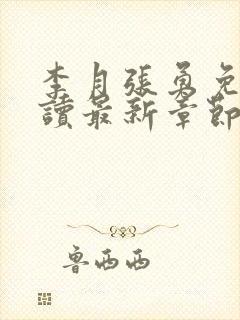 李月張勇免
讀最新章節
魯西西